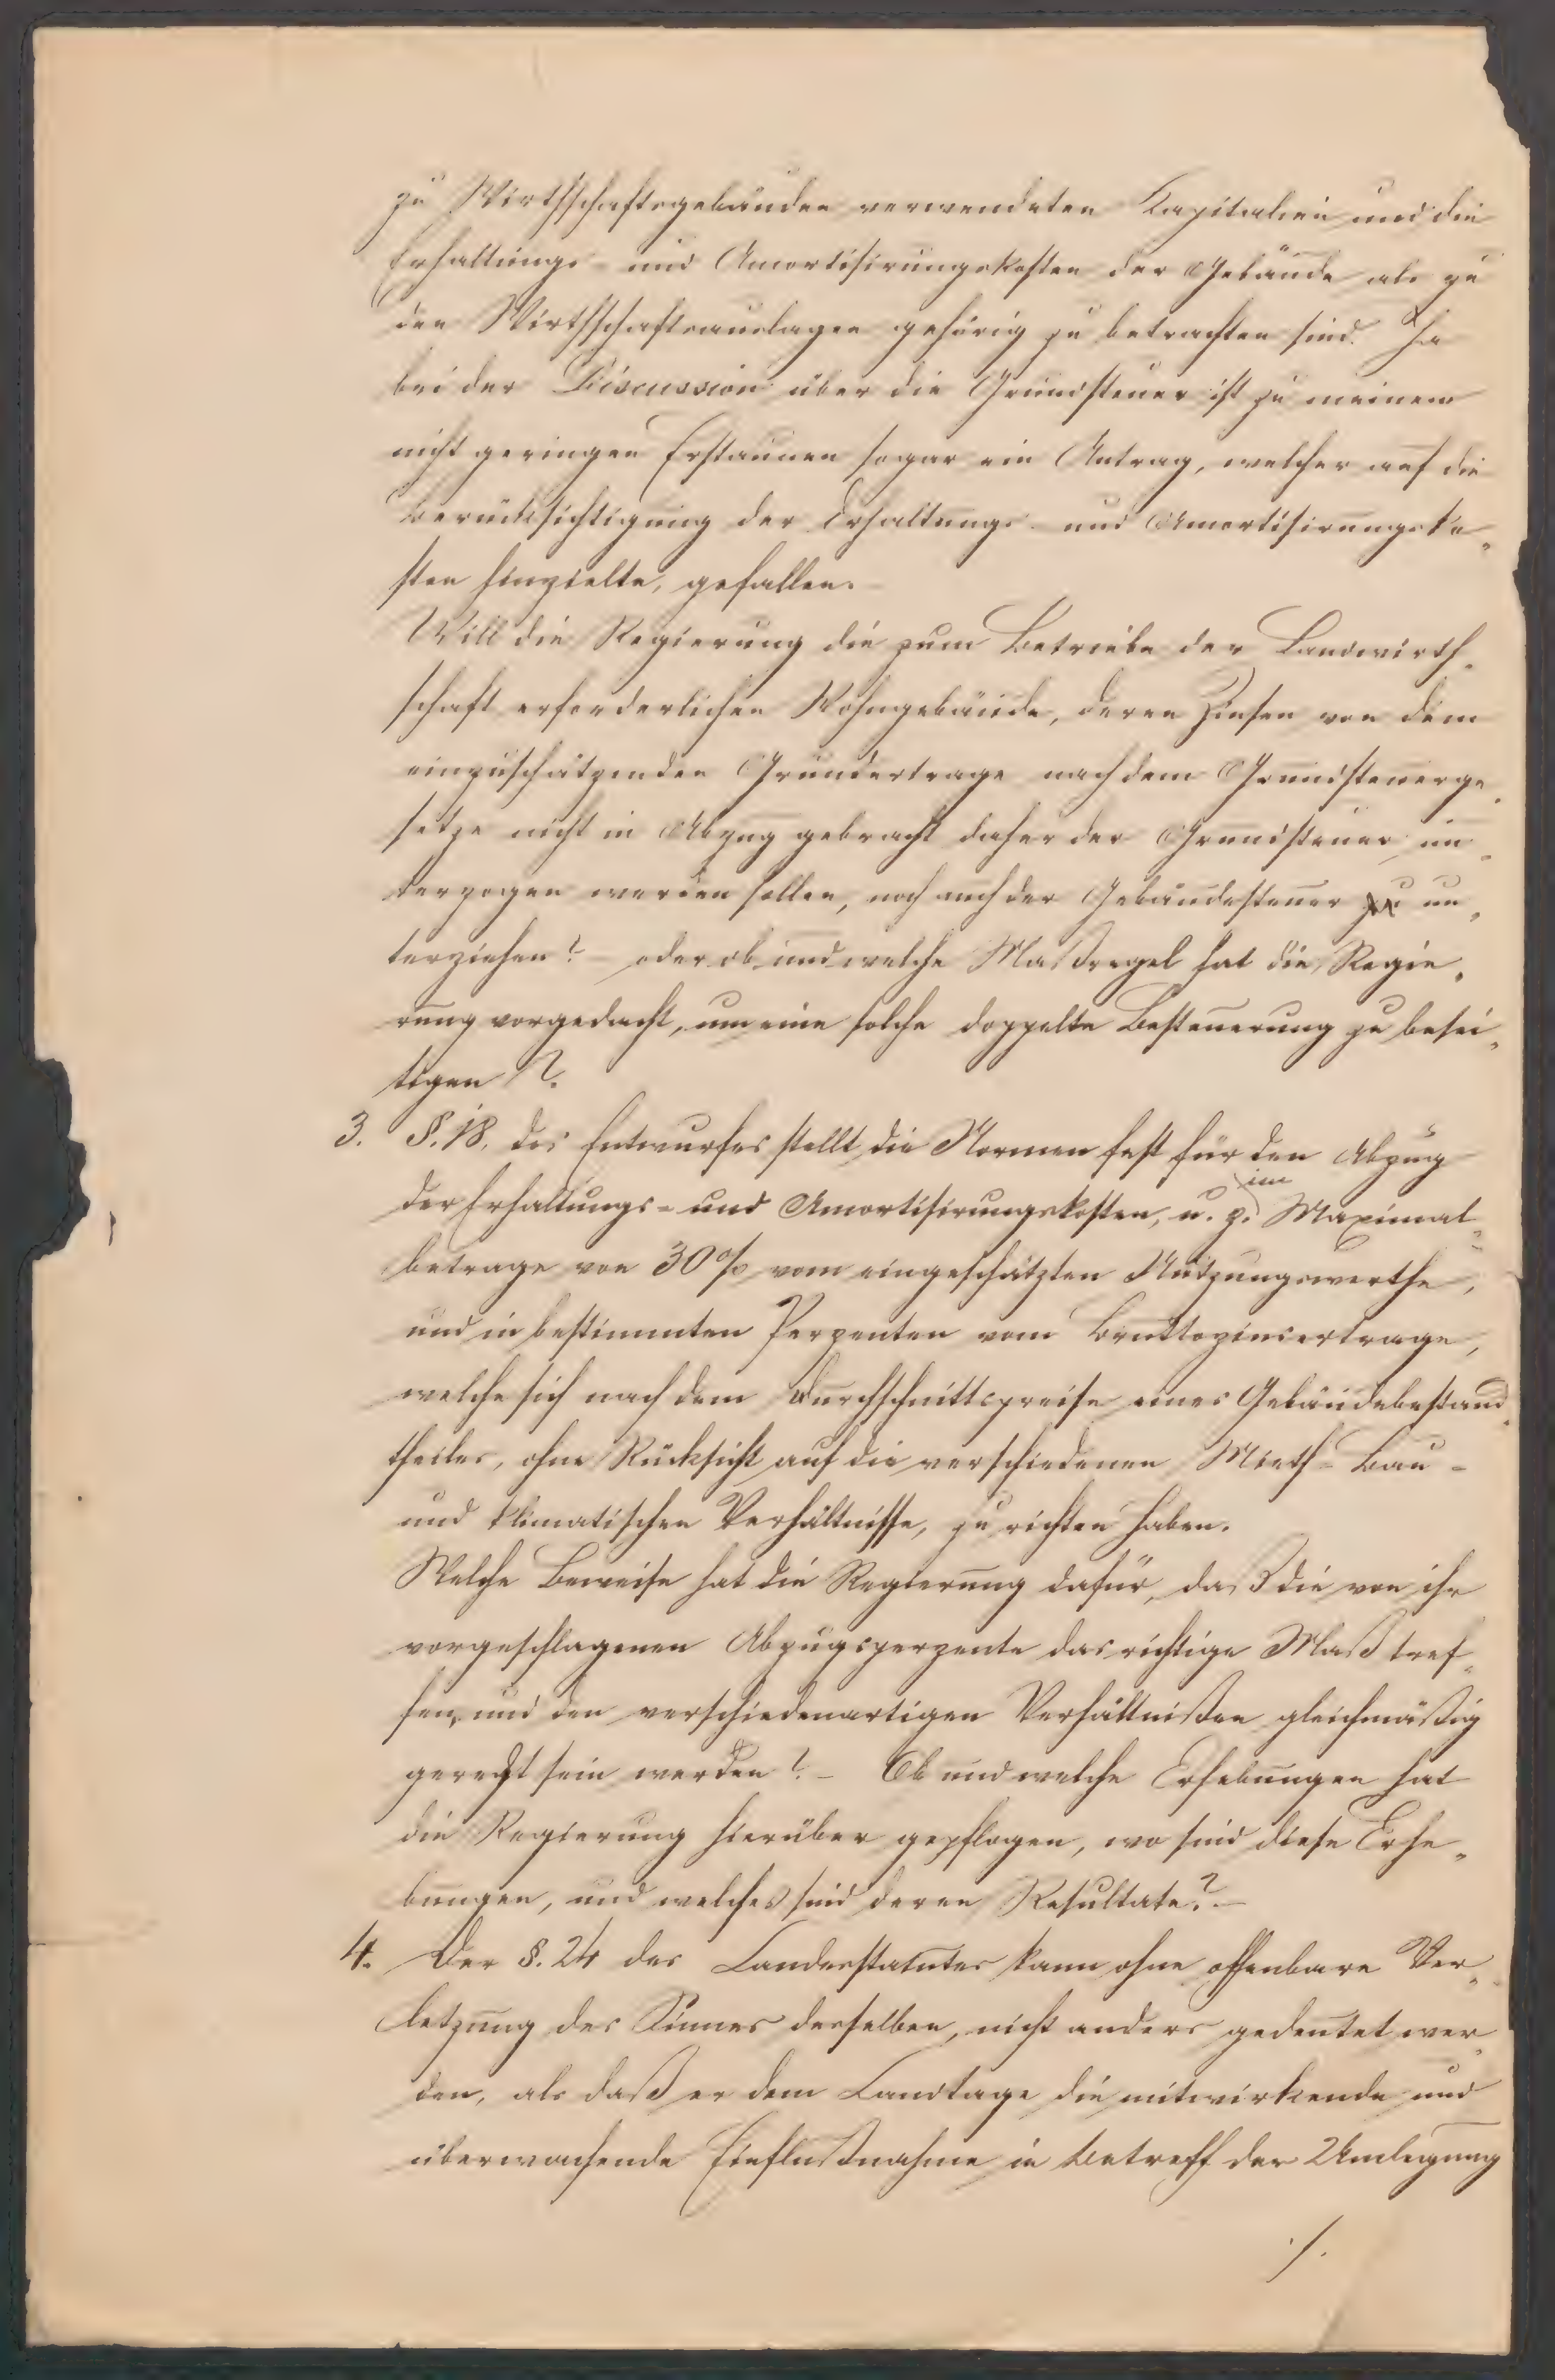 zu Wirthschaftsgebäuden verwendeten Kapitalien und die
Erhaltungs- und Amortisirungskosten der Gebäude als zu
den Wirthschaftsauslagen gehörig zu betrachten sind. Ja
bei der Discussion über die Grundsteuer ist zu meinem
nicht geringen Erstaunen sogar ein Antrag, welcher auf die
Berücksichtigung der Erhaltungs- und Amortisirungsko„
sten hinzielte, gefallen.
Will die Regierung die zum Betriebe der Landwirth„
schaft erforderlichen Wohngebäude, deren Zinsen von dem
einzuschätzenden Grundertrage nach dem Grundsteuerge„
setze nicht in Abzug gebracht daher der Grundsteuer un„
terzogen werden sollen, noch auch der Gebäudesteuer zu un„
terziehen? – oder ob und welche Maßregel hat die Regie„
rung vorgedacht, um eine solche doppelte Besteuerung zu besei„
tigen?
3. §. 18. des Entwurfes stellt die Normen fest für den Abzug
der Erhaltungs- und Amortisirungskosten, u. z. im Maximal„
betrage von 30% vom eingeschätzten Nutzungswerthe,
und in bestimmten Perzenten vom Bruttozinsertrage,
welche sich nach dem Durchschnittspreise eines Gebäudebestand„
theiles, ohne Rücksicht auf die verschiedenen Mieth- Bau-
und klimatischen Verhältnisse, zu richten haben.
Welche Beweise hat die Regierung dafür, daß die von ihr
vorgeschlagenen Abzugsperzente das richtige Maß tref„
fen, und den verschiedenartigen Verhältnißen gleichmäßig
gerecht sein werden? – Ob und welche Erhebungen hat
die Regierung hierüber gepflogen, wo sind diese Erhe„
bungen, und welches sind deren Resultate? –
4. Der §. 24 des Landesstatutes kann ohne offenbare Ver„
letzung des Sinnes desselben, nicht anders gedeutet wer„
den, als daß er dem Landtage die mitwirkende und
überwachende Einflußnahme in Betreff der Umlegung
./.